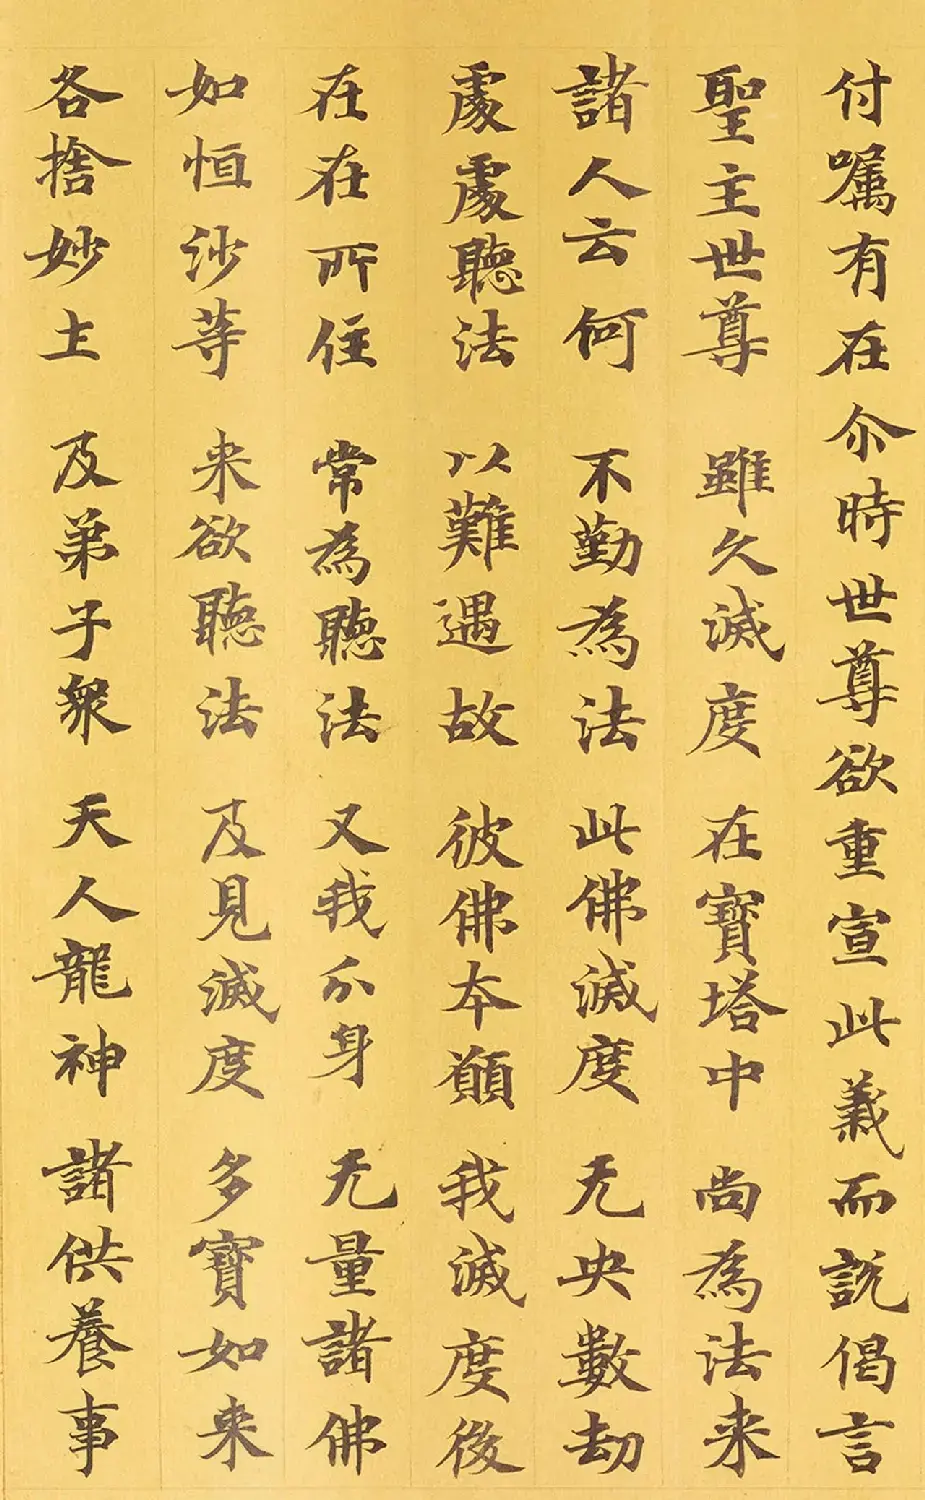 付嘱有在尒時世尊欲重宣此義而說偈言
聖主世尊 雖久滅度 在寶塔中 尚為法来
諸人云何 不勤為法 此佛滅度 无央數劫
處處聽法 以難遇故 彼佛本願 我滅度後
在在所住 常為聽法 又我分身 无量諸佛
如恒沙等 来欲聽法 及見滅度 多寶如来
各捨妙土 及弟子衆 天人龍神 諸供養事